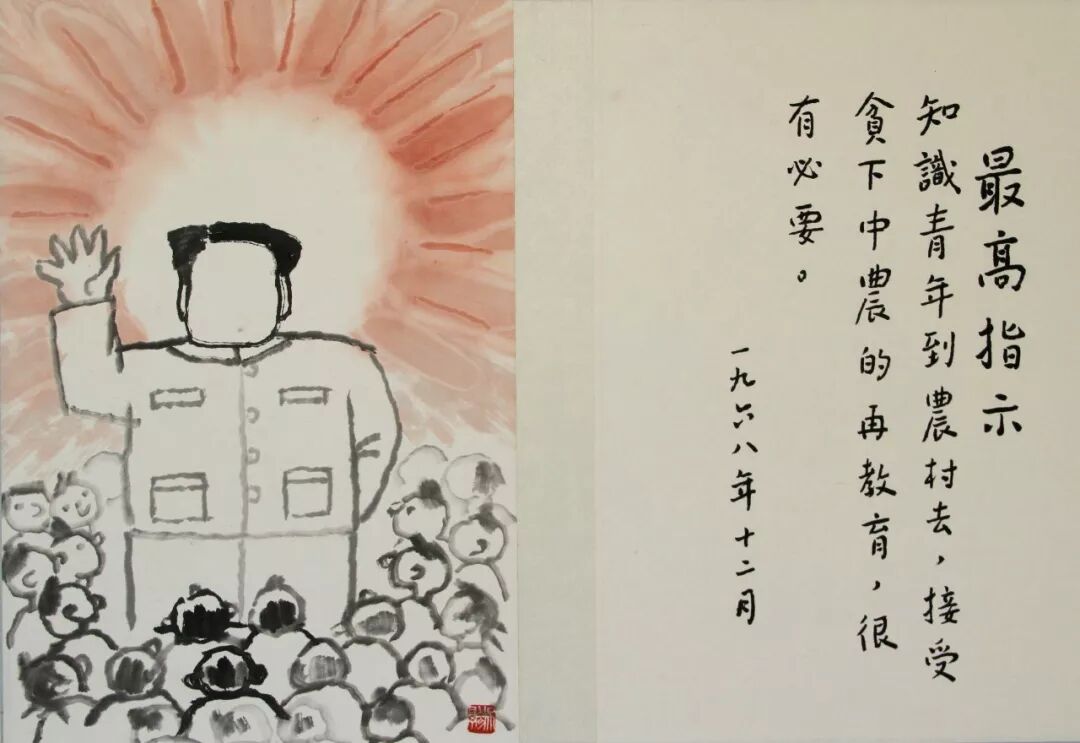 最高指示
知識青年到農村去，接受
貧下中農的再教育，很
有必要。
一九六八年十二月